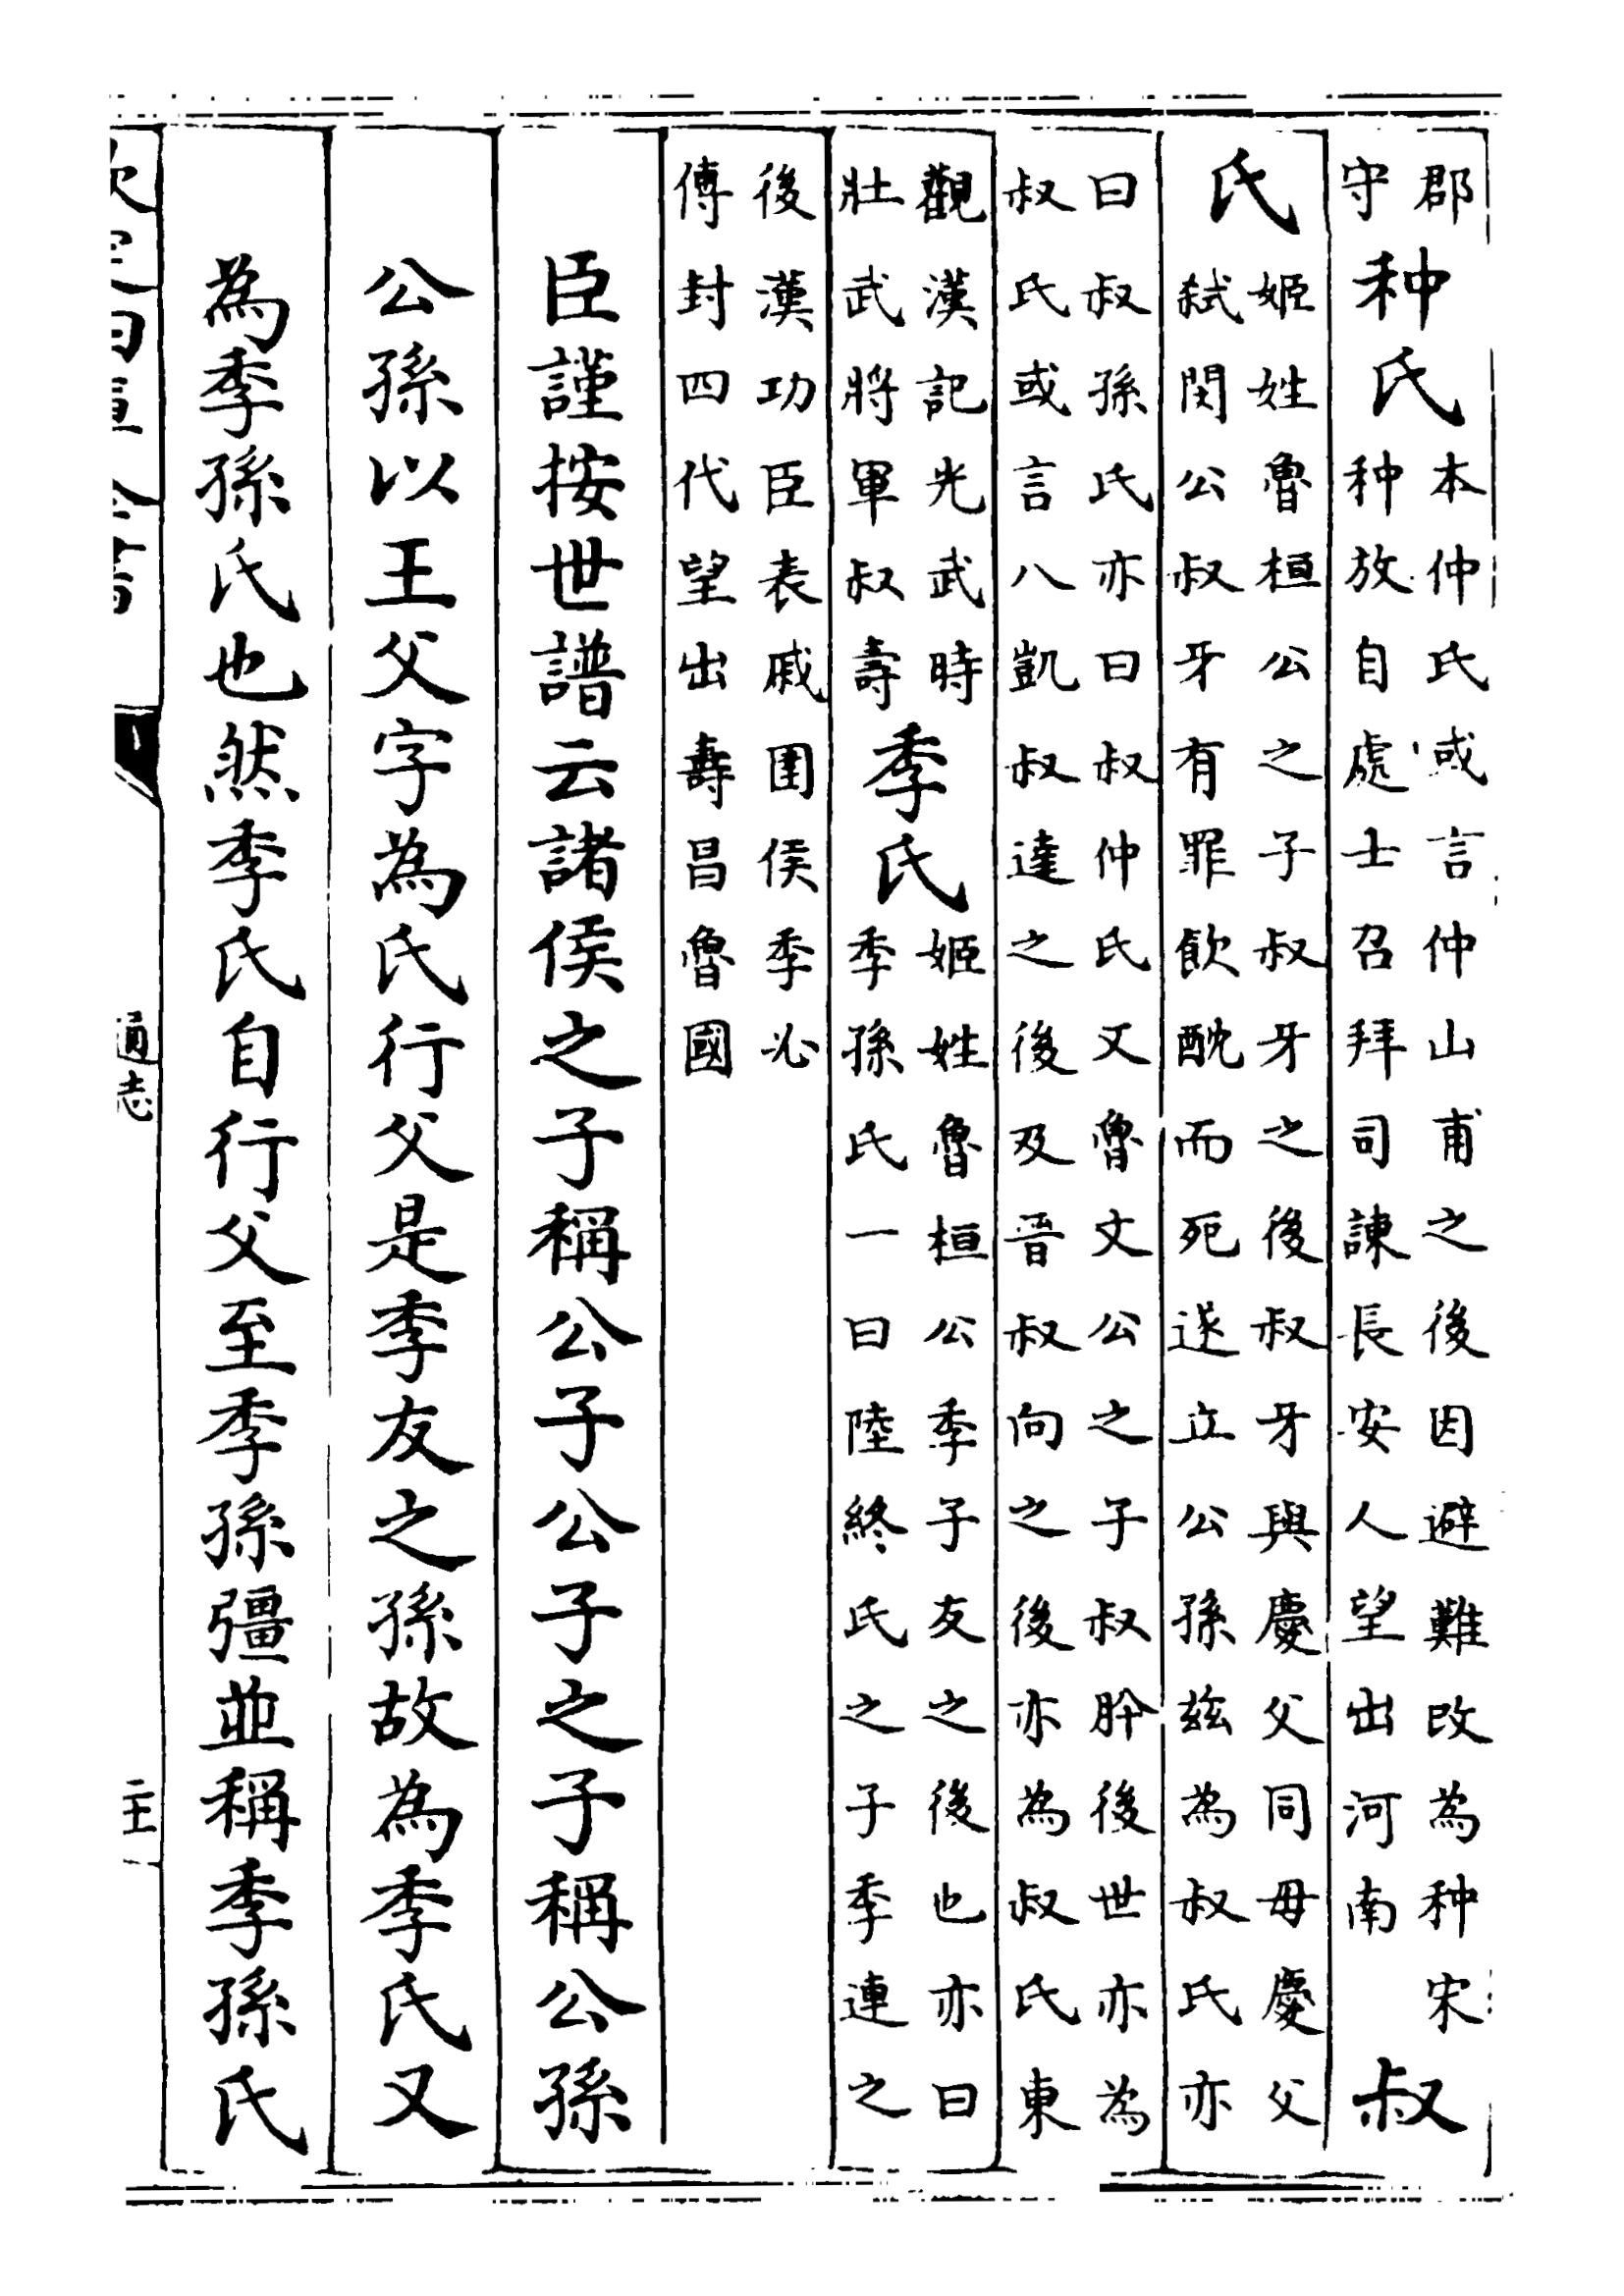 郡
守
种氏
本仲氏或言仲山甫之後因避難改為种宋
种放自處士召拜司諫長安人望出河南
叔
氏
姬姓魯桓公之子叔牙之後叔牙與慶父同母慶父
弑閔公叔牙有罪飲酖而死遂立公孫兹為叔氏亦
曰叔孫氏亦曰叔仲氏又魯文公之子叔肸後世亦為
叔氏或言八凱叔達之後及晉叔向之後亦為叔氏東
觀漢記光武時
壯武將軍叔壽
季氏
姬姓魯桓公季子友之後也亦曰
季孫氏一曰陸終氏之子季連之
後漢功臣表戚圉侯季必
傅封四代望出壽昌魯國
臣謹按世譜云諸侯之子稱公子公子之子稱公孫
公孫以王父字為氏行父是季友之孫故為季氏又
為季孫氏也然季氏自行父至季孫彊並稱季孫氏
欽定四庫全書
通志